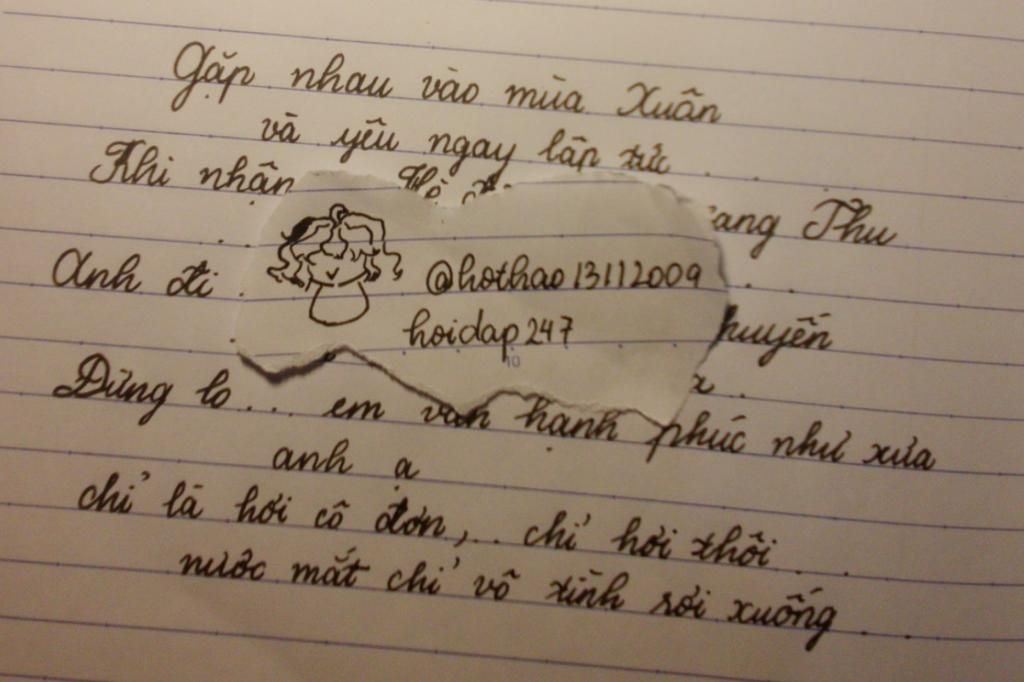 Gặp nhau vào mùa Xuân
và yêu ngay lập tức ...
Khi nhận ang Thu
Anh đi . ..
@hothao13112009
huyến
hoidap247
10
Đừng lo ... em vẫn hạnh phúc như xưa
anh ạ
chỉ là hơi cô đơn, .. chỉ hơi thôi ...
nước mắt chỉ vô tình rơi xuống ...